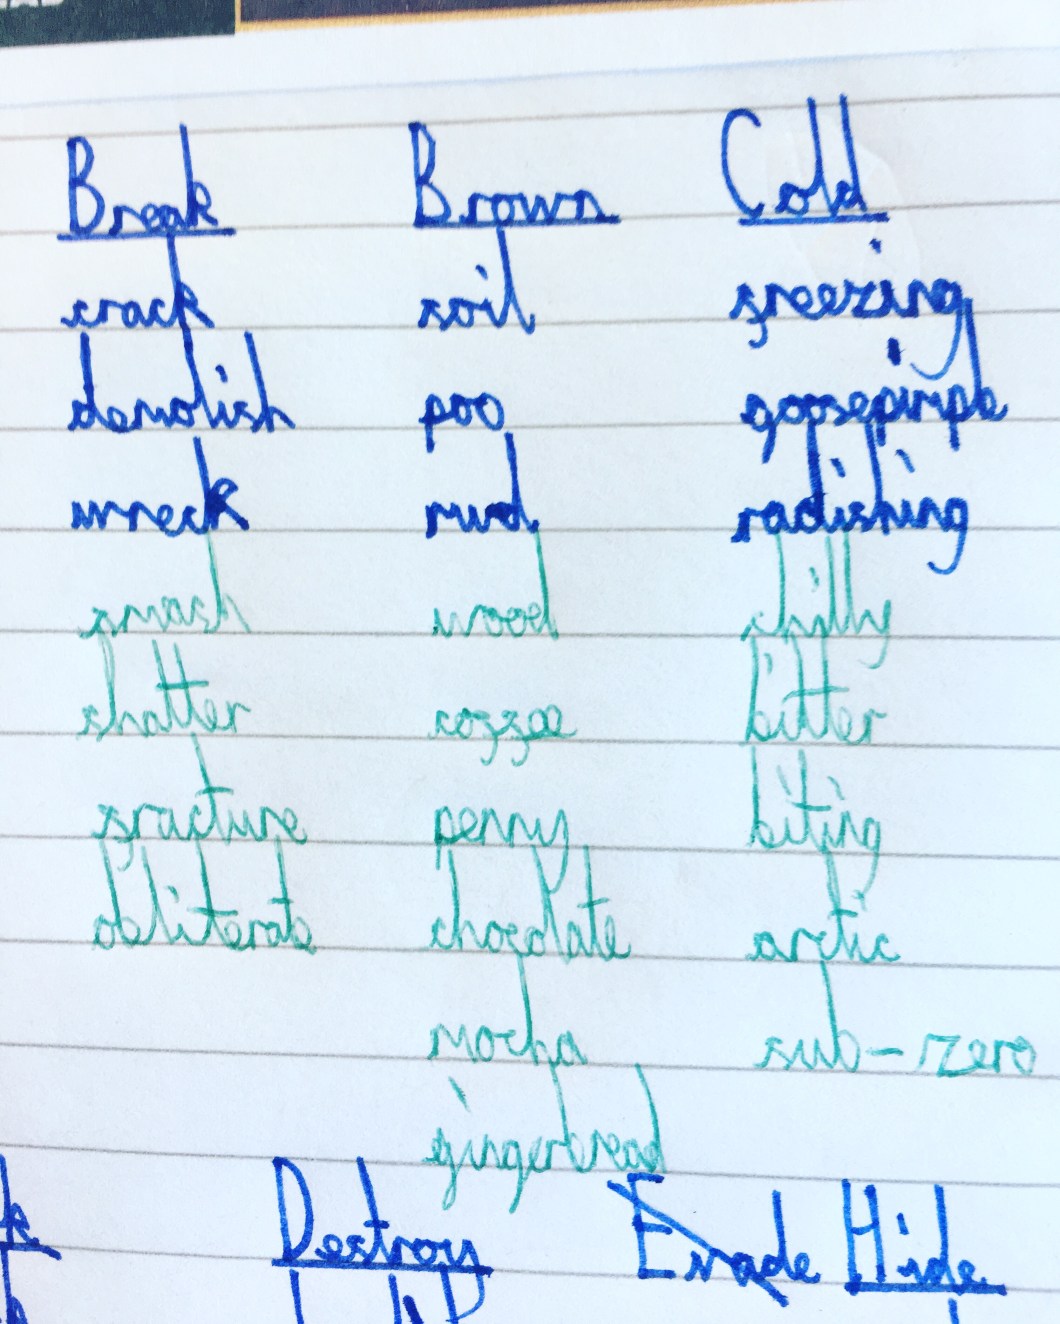 Break Brown Cold
crack soil freezing
demolish poo goosepimple
wreck mud radishing
smash wood chilly
shatter coffee bitter
fracture penny biting
obliterate chocolate arctic
mocha sub-zero
gingerbread
Destroy Evade Hide